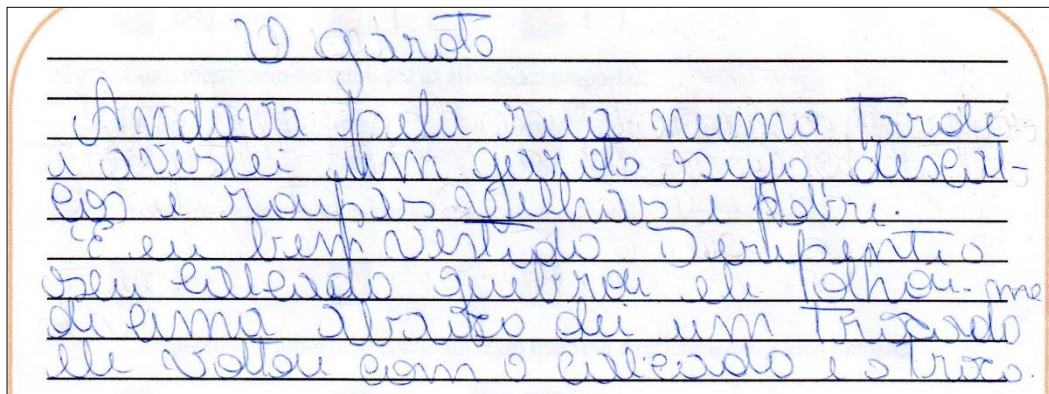 O garoto
Andava pela rua numa tarde
e avistei um garoto sujo descal-
ços e roupas velhas e pobre.
E eu bem vestido Derepente o
seu calcado quebrou ele olhou-me
de cima abaixo dei um trocado
ele voltou com o calcado e o troco.